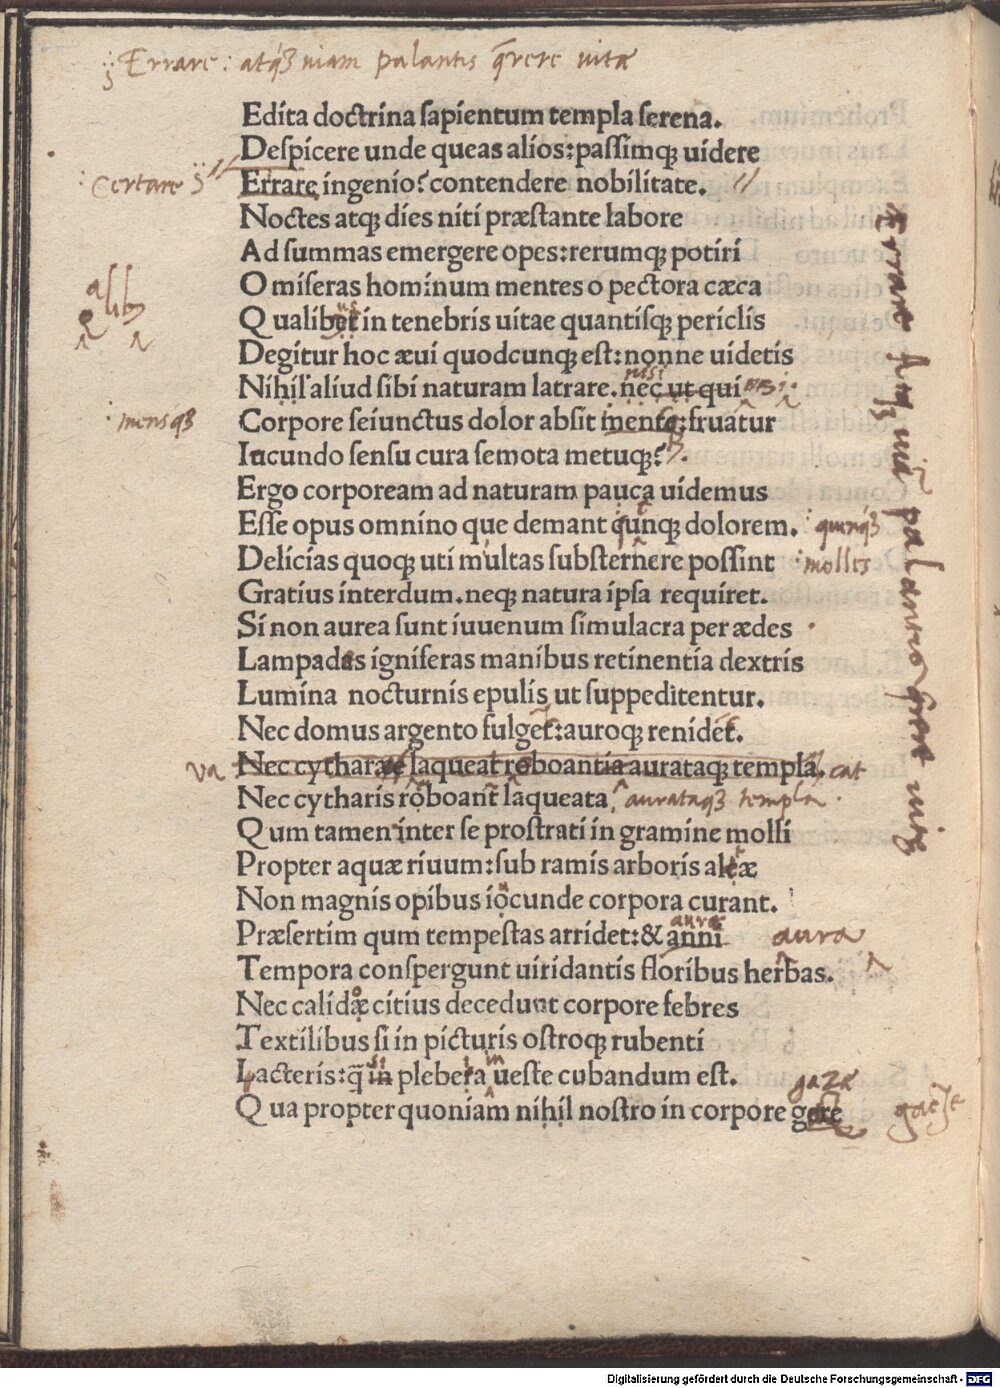 Errare: atq̃ʒ uiam palantis q̄rere uitæ
Edita doctrina sapientum templa serena.
Despicere unde queas alios: passimqꝫ uidere
: Certare
Errare ingenio? contendere nobilitate.
Noctes atqꝫ dies niti præstante labore
Ad summas emergere opes: rerumqꝫ potiri
O miseras hominum mentes o pectora cæca
Q ualibet in tenebris uitae quantisqꝫ periclis
Degitur hoc æui quodcunqꝫ est: nonne uidetis
nisi
Nihil aliud sibi naturam latrare. nec ut qui
: mensqʒ
Corpore seiunctus dolor absit mente: fruatur
Iucundo sensu cura semota metuqꝫ?
Ergo corpoream ad naturam pauca uidemus
Esse opus omnino que demant cunqꝫ dolorem. : qumqʒ
Delicias quoqꝫ uti multas substernere possint : molles
Gratius interdum. neqꝫ natura ipsa requiret.
Si non aurea sunt iuuenum simulacra per ædes
Lampadas igniferas manibus retinentia dextris
Lumina nocturnis epulis ut suppeditentur.
Nec domus argento fulget: auroqꝫ renidet.
va Nec cytharae laqueat roboantia aurataqꝫ templa. cat
Nec cytharis roboant laqueata aurataqʒ templa.
Q um tamen inter se prostrati in gramine molli
Propter aquæ riuum: sub ramis arboris altæ
Non magnis opibus iocunde corpora curant.
Præsertim qum tempestas arridet: & anni aura
Tempora conspergunt uiridantis floribus herbas.
Nec calidæ citius decedunt corpore febres
Textilibus si in picturis ostroqꝫ rubenti
Lacteris: q̄ in plebeia ueste cubandum est.
gazæ
Q ua propter quoniam nihil nostro in corpore gere gaze
Errare Atqʒ uiā palantis qrere uitę
Digitalisierung gefördert durch die Deutsche Forschungsgemeinschaft - DFG